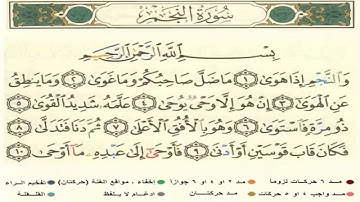 سُورَةُ النَّجْمِ
بِسْمِ اللَّهِ الرَّحْمَٰنِ الرَّحِيمِ
وَالنَّجْمِ إِذَا هَوَىٰ ١ مَا ضَلَّ صَاحِبُكُمْ وَمَا غَوَىٰ ٢ وَمَا يَنطِقُ
عَنِ الْهَوَىٰ ٣ إِنْ هُوَ إِلَّا وَحْيٌ يُوحَىٰ ٤ عَلَّمَهُ شَدِيدُ الْقُوَىٰ ٥
ذُو مِرَّةٍ فَاسْتَوَىٰ ٦ وَهُوَ بِالْأُفُقِ الْأَعْلَىٰ ٧ ثُمَّ دَنَا فَتَدَلَّىٰ ٨
فَكَانَ قَابَ قَوْسَيْنِ أَوْ أَدْنَىٰ ٩ فَأَوْحَىٰ إِلَىٰ عَبْدِهِ مَا أَوْحَىٰ ١٠
مد ٦ حركات لزوماً مد ٢ او ٤ او ٦ جوازاً إخفاء ، ومواقع الغنة (حركتان) تفخيم الراء
مد واجب ٤ او ٥ حركات مد حركتان ادغام ، وما لا يلفظ القلقلة